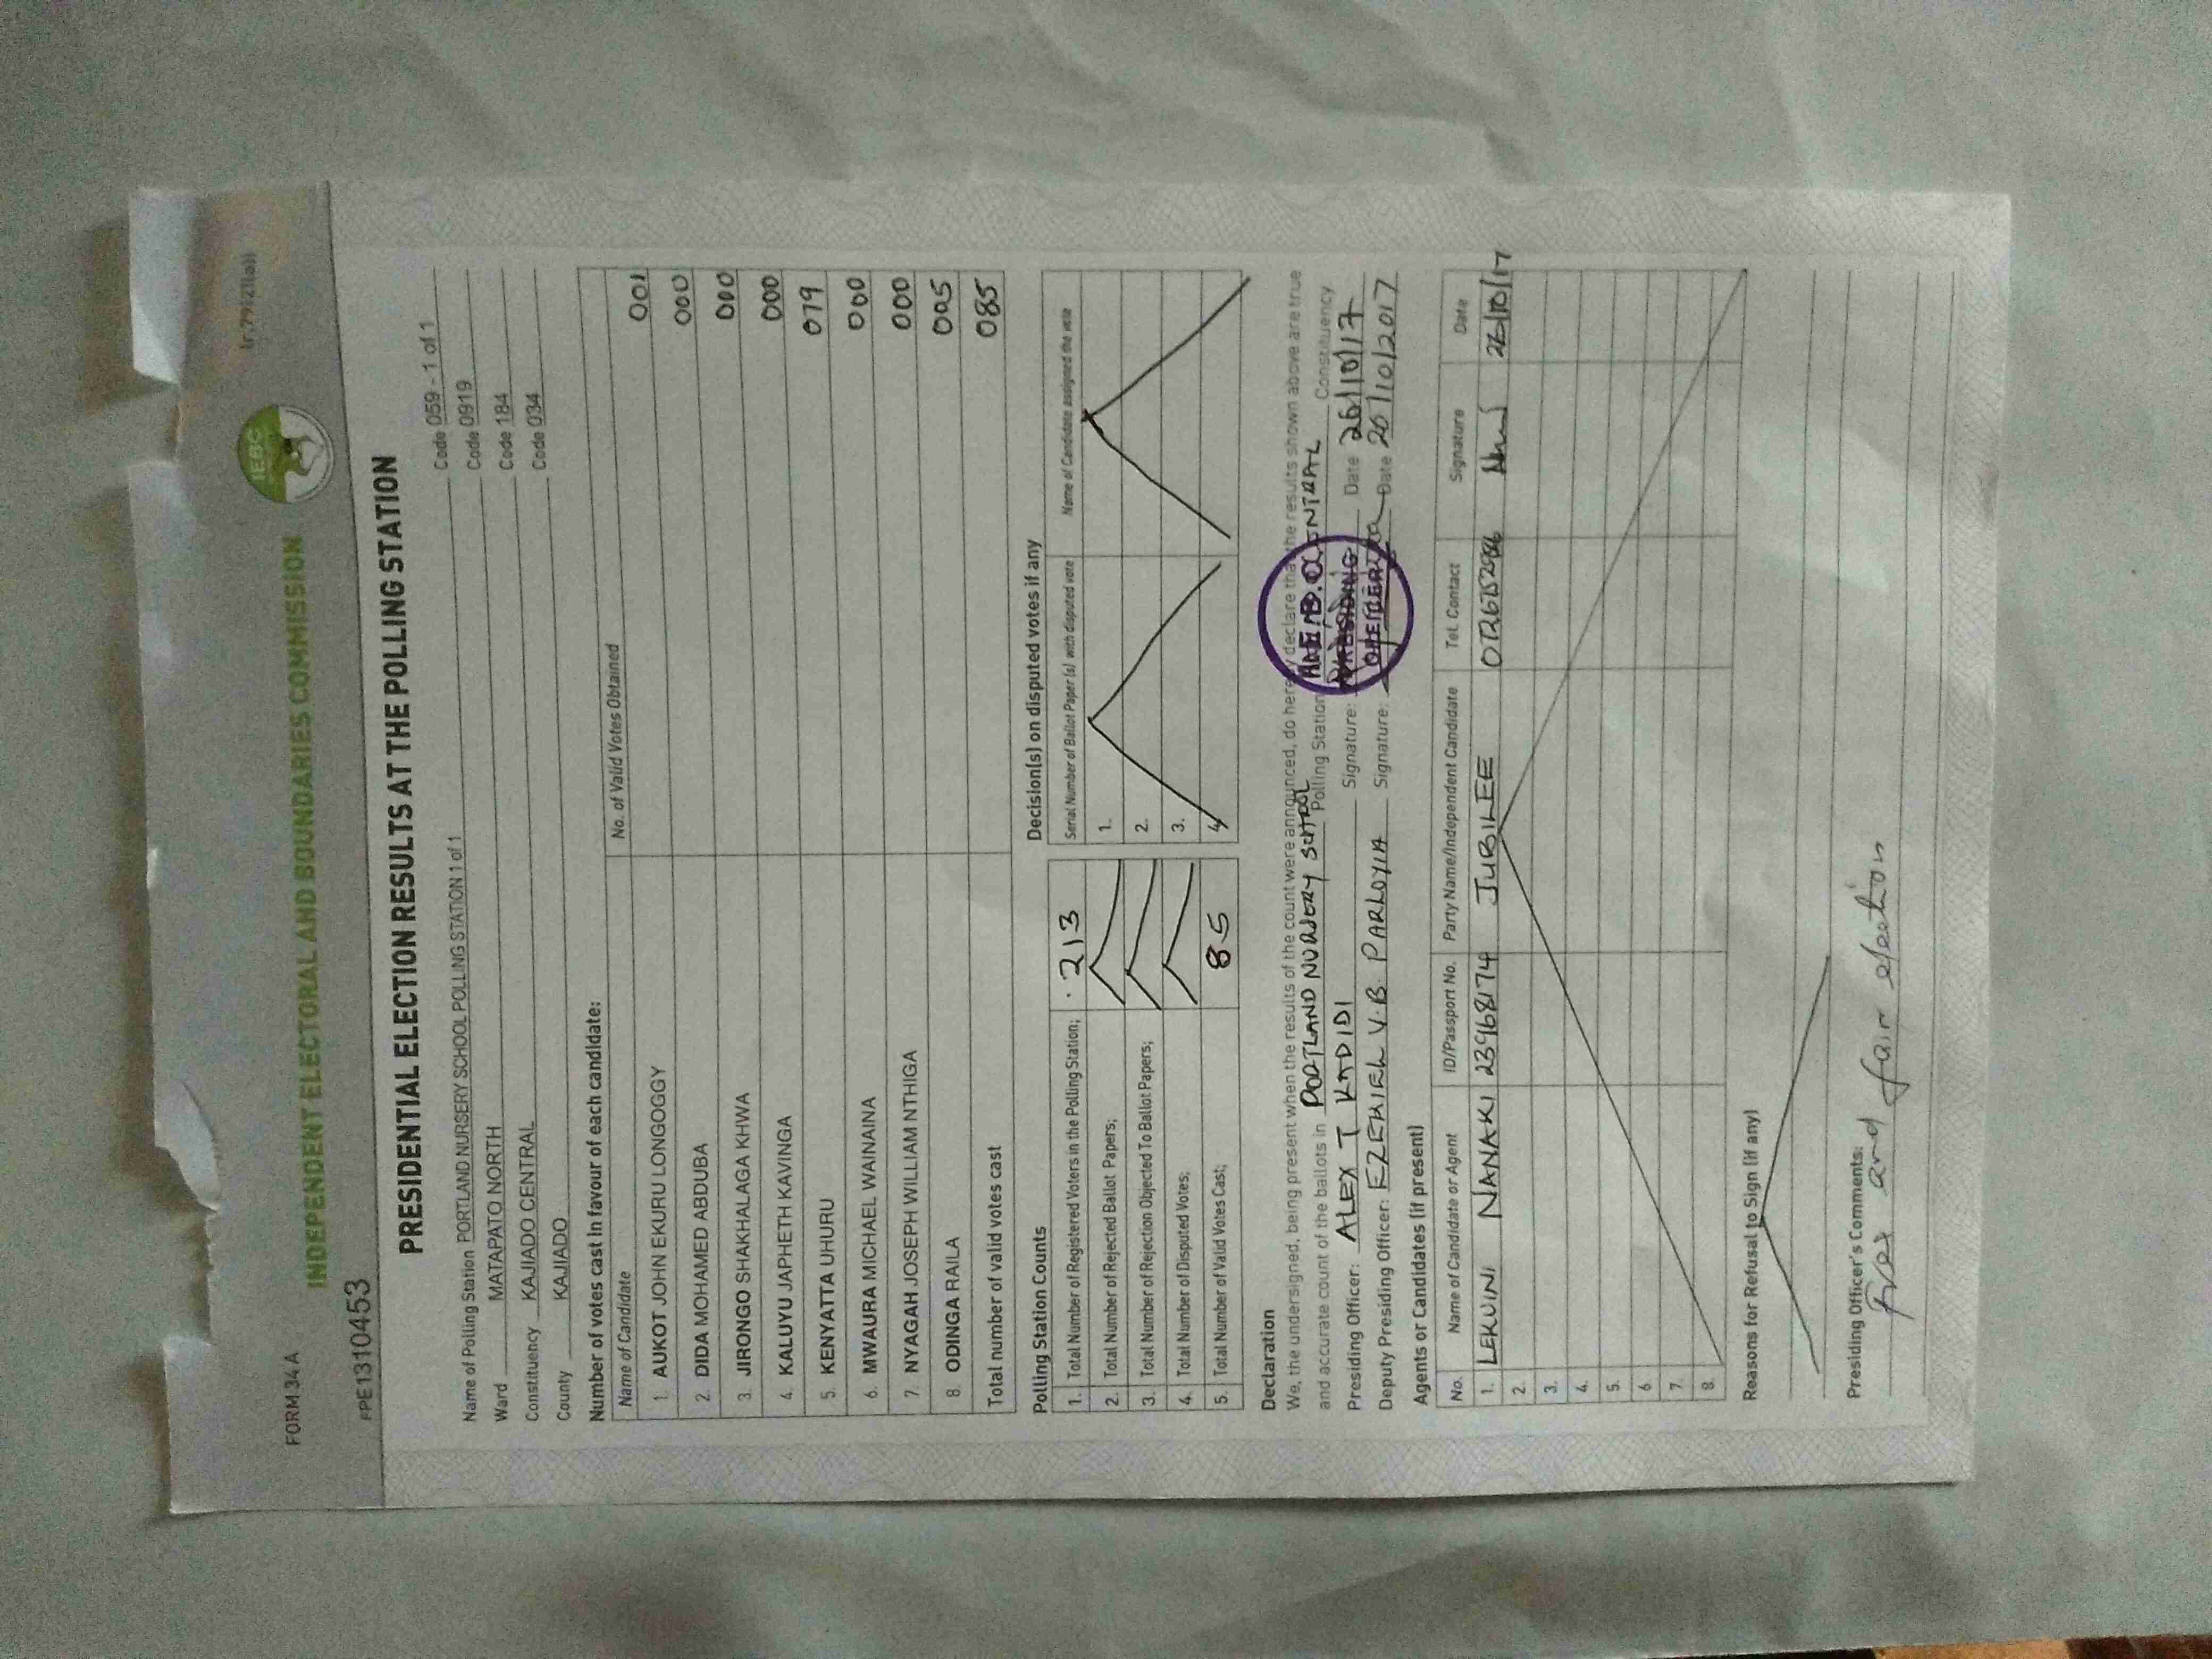 FORM 34 A
INDEPENDENT ELECTORAL AND BOUNDARIES COMMISSION
IEBC
FPE1310453
PRESIDENTIAL ELECTION RESULTS AT THE POLLING STATION
Name of Polling Station PORTLAND NURSERY SCHOOL POLLING STATION 1 of 1 Code 059 - 1 of 1
Ward MATAPATO NORTH Code 0919
Constituency KAJIADO CENTRAL Code 184
County KAJIADO Code 034
Number of votes cast in favour of each candidate:
Name of Candidate No. of Valid Votes Obtained
1. AUKOT JOHN EKURU LONGOGGY 001
2. DIDA MOHAMED ABDUBA 000
3. JIRONGO SHAKHALAGA KHWA 000
4. KALUYU JAPHETH KAVINGA 000
5. KENYATTA UHURU 079
6. MWAURA MICHAEL WAINAINA 000
7. NYAGAH JOSEPH WILLIAM NTHIGA 000
8. ODINGA RAILA 005
Total number of valid votes cast 085
Polling Station Counts
1. Total Number of Registered Voters in the Polling Station; 213
2. Total Number of Rejected Ballot Papers;
3. Total Number of Rejection Objected To Ballot Papers;
4. Total Number of Disputed Votes;
5. Total Number of Valid Votes Cast; 85
Decision(s) on disputed votes if any
Serial Number of Ballot Paper (s) with disputed vote Name of Candidate assigned the vote
1.
2.
3.
4.
Declaration
We, the undersigned, being present when the results of the count were announced, do hereby declare that the results shown above are true
and accurate count of the ballots in PORTLAND NURSERY SCHOOL Polling Station CENTRAL Constituency
Presiding Officer: ALEX T KADIDI Signature: Date 26/10/17
Deputy Presiding Officer: EZEKIEL V.B. PARLOYIA Signature: Date 26/10/2017
PRESIDING
OFFICER
Agents or Candidates (if present)
No. Name of Candidate or Agent ID/Passport No. Party Name/Independent Candidate Tel. Contact Signature Date
1. LEKUINI NANAKI 23968174 JUBILEE 26/10/17
2.
3.
4.
5.
6
7.
8.
Reasons for Refusal to Sign (if any)
Presiding Officer's Comments:
Free and fair election